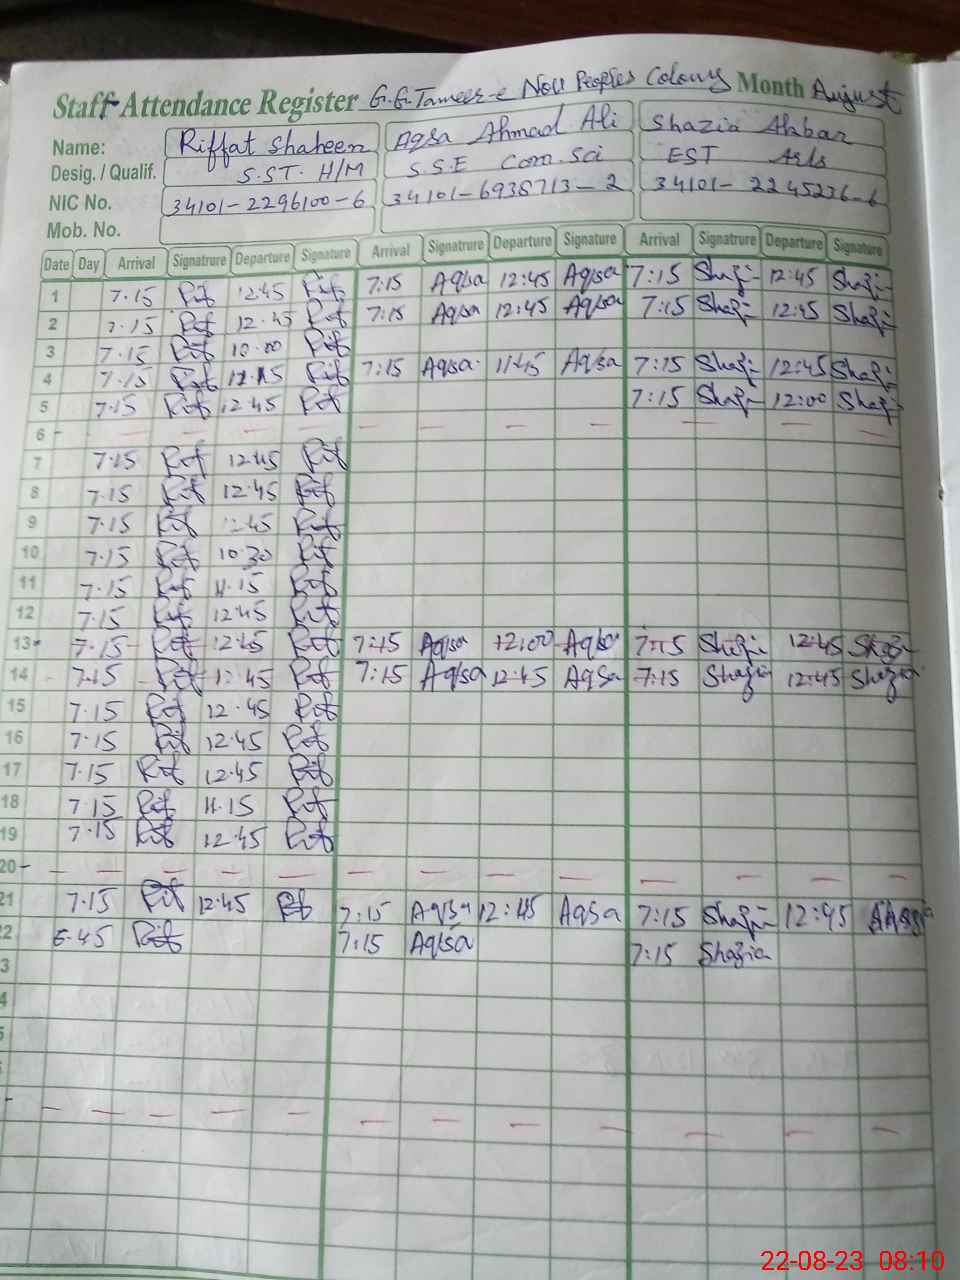 Staff Attendance Register G.G. Tameer-e Nou Peoples Colony Month August
Name: Riffat Shaheen Aqsa Ahmad Ali Shazia Akbar
Desig. / Qualif. S.ST. H/M S.S.E Com. Sci EST Arts
NIC No. 34101-2296100-6 34101-6938713-2 34101-2245236-6
Mob. No.
Date Day Arrival Signatrure Departure Signature Arrival Signatrure Departure Signature Arrival Signatrure Departure Signature
1 7.15 Rif 12.45 Rif 7:15 Aqsa 12:45 Aqsa 7:15 Shazi 12:45 Shazi
2 7.15 Rif 12.45 Rif 7:15 Aqsa 12:45 Aqsa 7:15 Shazi 12:45 Shazi
3 7.15 Rif 10.00 Rif
4 7.15 Rif Rif 7:15 Aqsa 11:45 Aqsa 7:15 Shazi 12:45 Shazi
5 7.15 Rif 12.45 Rif 7:15 Shazi 12:00 Shazi
6 -
7 7.15 Rif 12.45 Rif
8 7.15 Rif 12.45 Rif
9 7.15 Rif 12.45 Rif
10 7.15 Rif 10.30 Rif
11 7.15 Rif 11.15 Rif
12 7.15 Rif 12.45 Rif
13 7.15 Rif 12.45 Rif 7:15 Aqsa 12:00 Aqsa 7:15 Shazi 12:45 Shazi
14 7.15 Rif 12.45 Rif 7:15 Aqsa 12:45 Aqsa 7:15 Shazia 12:45 Shazia
15 7.15 Rif 12.45 Rif
16 7.15 Rif 12.45 Rif
17 7.15 Rif 12.45 Rif
18 7.15 Rif 11.15 Rif
19 7.15 Rif 12.45 Rif
20 -
21 7.15 Rif 12.45 Rif 7:15 Aqsa 12:45 Aqsa 7:15 Shazi 12:45
2 6.45 Rif 7:15 Aqsa 7:15 Shazia
3
4
5
22-08-23 08:10